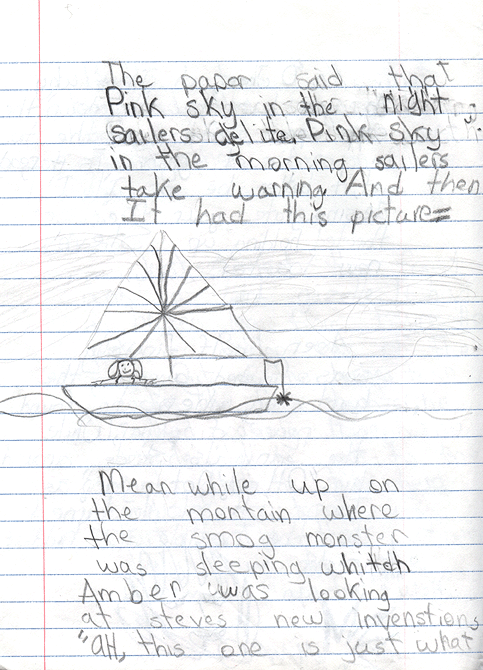 The paper said that
Pink sky in the "night
sailers delite. Pink sky
in the morning sailers
take warning And then
It had this picture=
Mean while up on
the montain where
the smog monster
was sleeping whitch
Amber was looking
at steves new invenstions
"aH, this one is just what